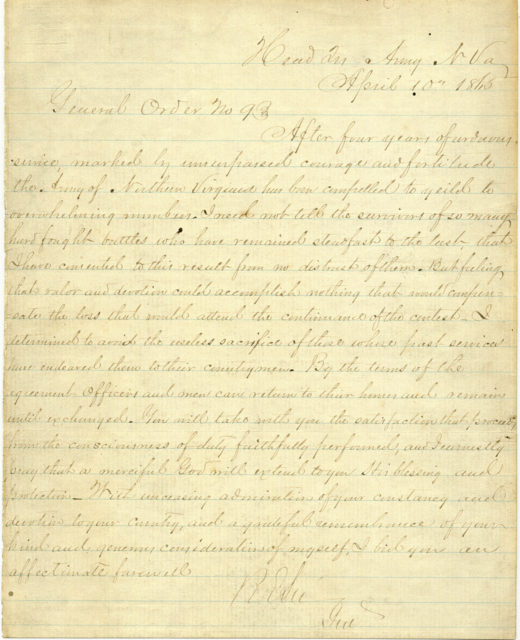 Head Qrs Army N Va
April 10th 1865
General Order No 9
After four years of arduous
service, marked by unsurpassed courage and fortitude
the Army of Northern Virginia has been compelled to yeild to
overwhelming numbers. I need not tell the survivors of so many
hard fought battles who have remained steadfast to the last that
I have consented to this result from no distrust of them. But feeling
that valor and devotion could accomplish nothing that would compen-
sate the loss that would attend the continuance of the contest - I
determined to avoid the useless sacrifice of those whose past services
have endeared them to their countrymen. By the terms of the
agreement Officers and men can return to their homes and remain
until exchanged. You will take with you the satisfaction that proceeds
from the consciousness of duty faithfully performed, and I earnestly
pray that a merciful God will extend to you His blessing and
protection - With unceasing admiration of your constancy and
devotion to your Country, and a grateful remembrance of your
kind and generous consideration of myself, I bid you an
affectionate farewell
R E Lee
Genl